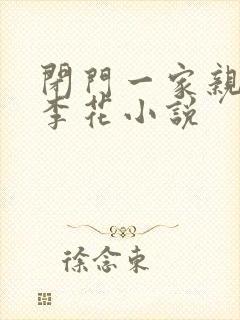 閉門一家親
李花小說
徐念東